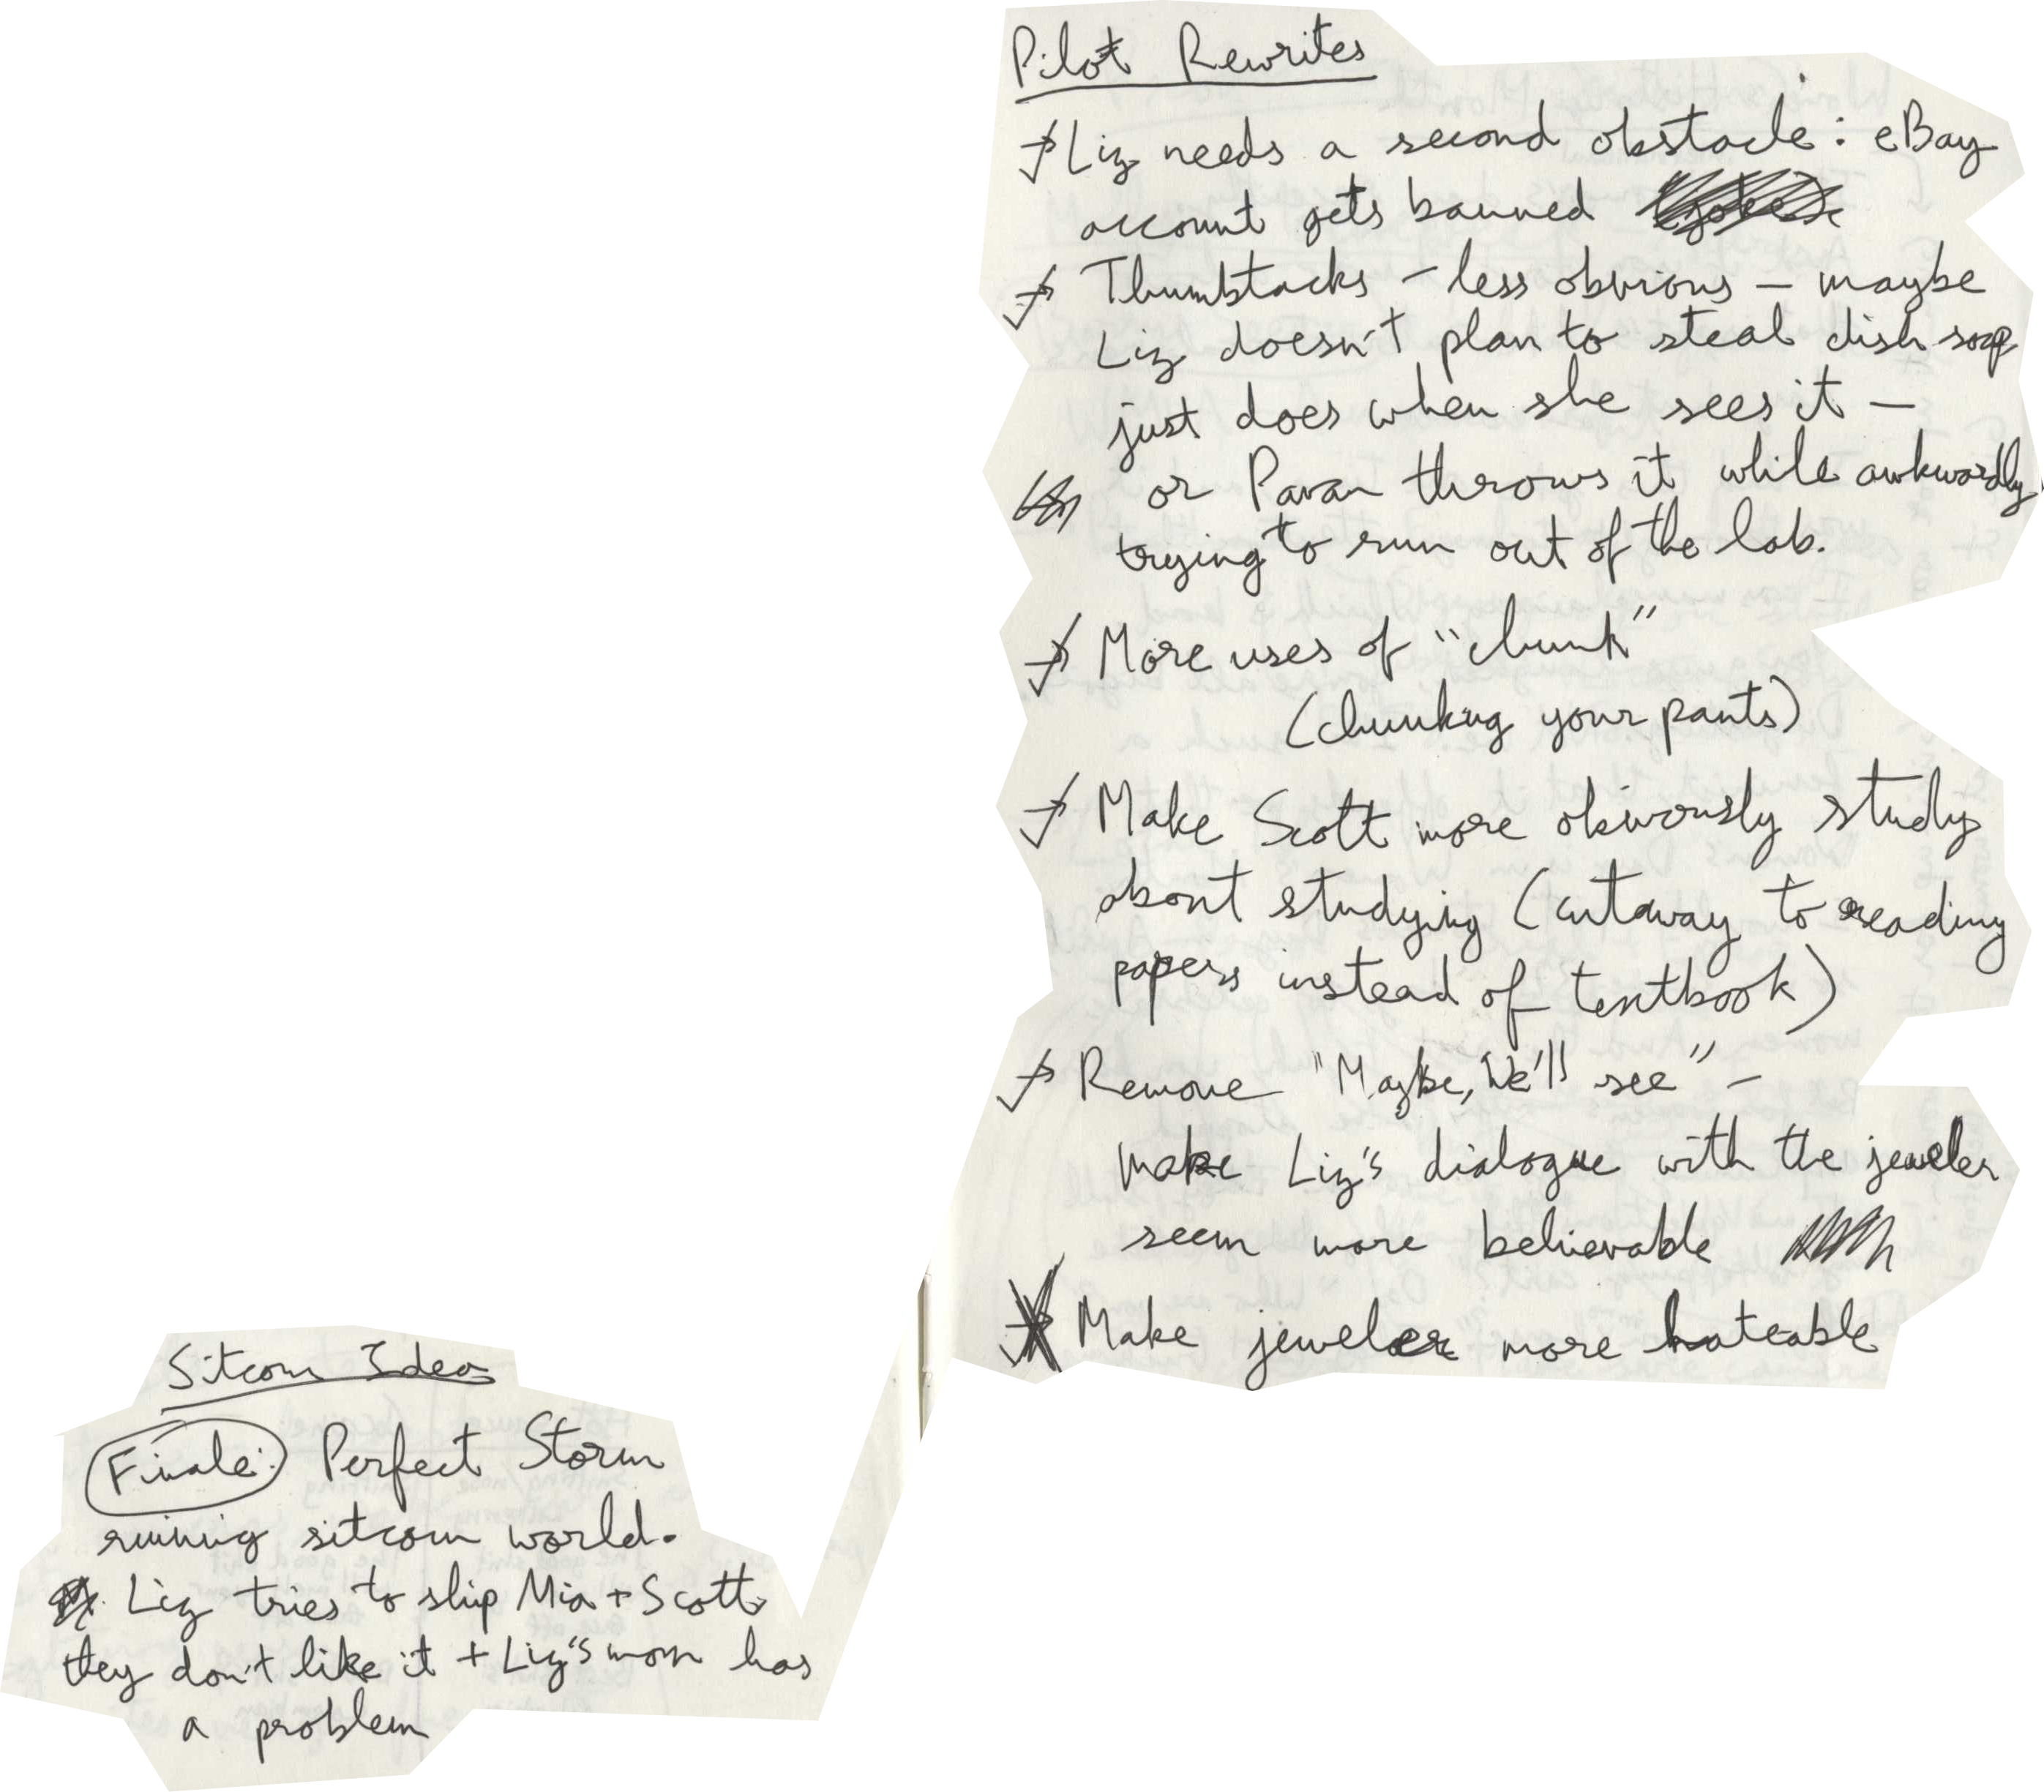 Pilot Rewrites
Liz needs a second obstacle: eBay
account gets banned
Thumbtacks - less obvious - maybe
Liz doesn't plan to steal dish soap
just does when she sees it -
or Pavan throws it while awkwardly
trying to run out of the lab.
More uses of "chunk"
(chunking your pants)
Make Scott more obviously study
about studying (cutaway to reading
papers instead of textbook)
Remove "Maybe, We'll see" -
make Liz's dialogue with the jeweler
seem more believable
Make jeweler more hateable
Sitcom Ideas
Finale: Perfect Storm
ruining sitcom world.
Liz tries to ship Mia + Scott
they don't like it + Liz's mom has
a problem